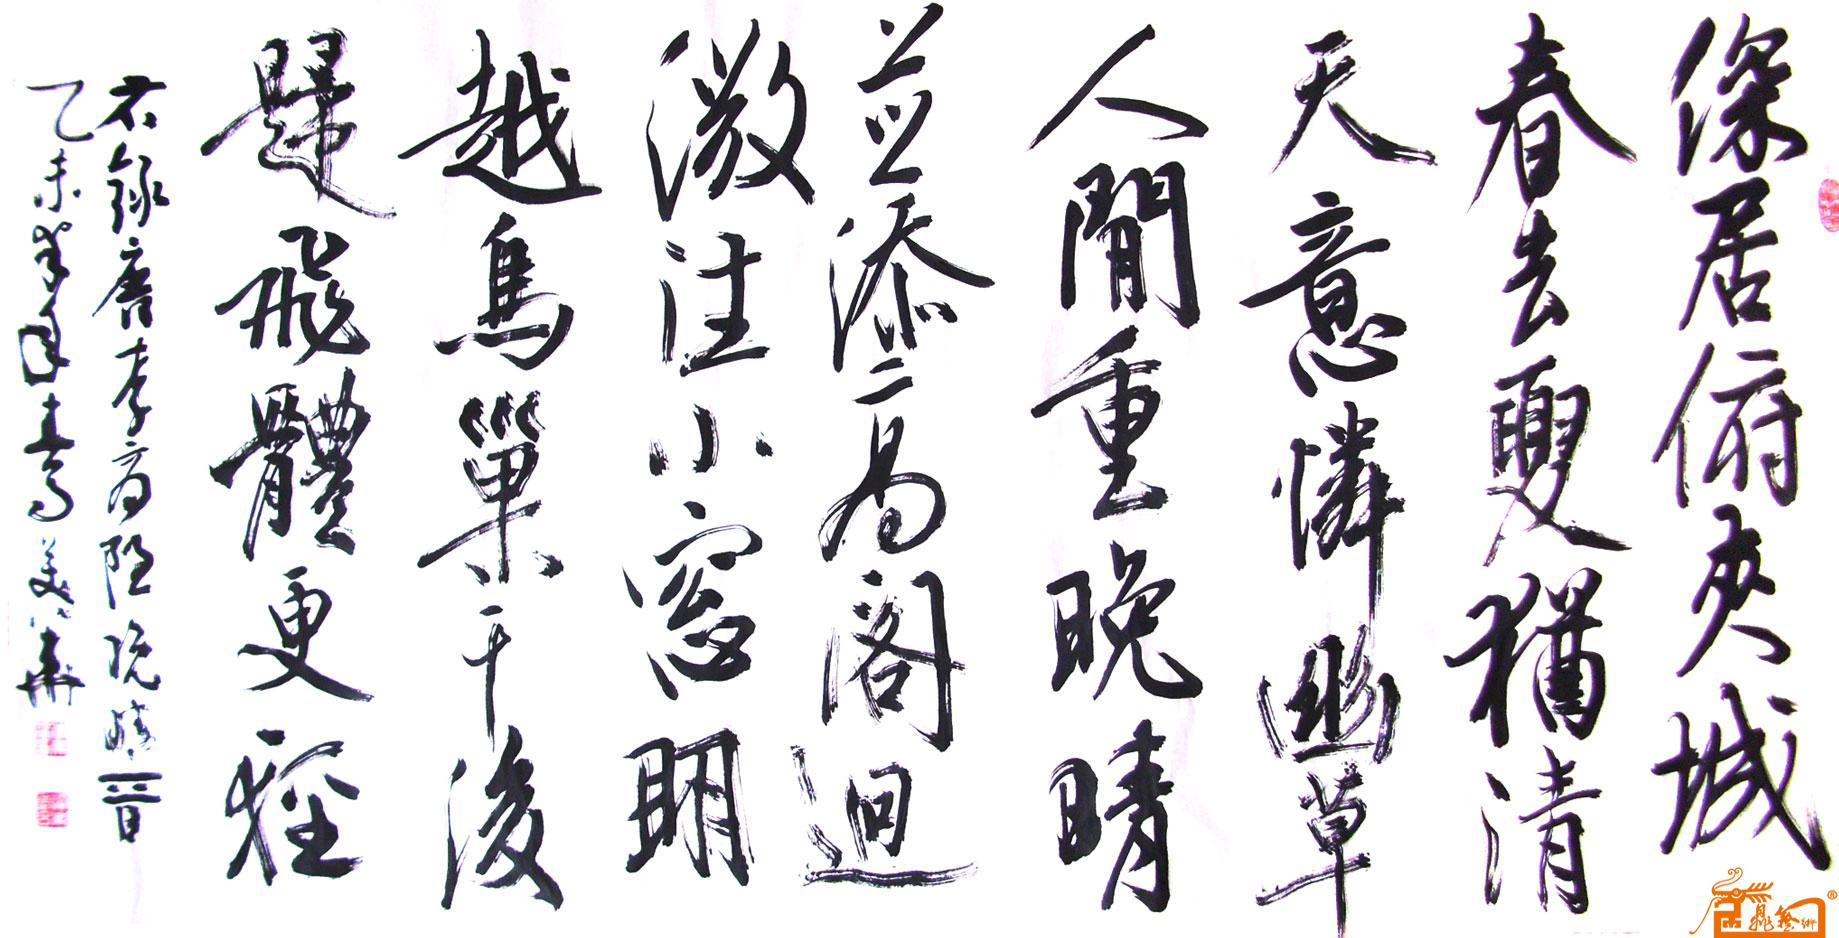 深居俯夾城
春去夏猶清
天意憐幽草
人間重晚晴
並添高閣迥
微注小窓明
越鳥巢干後
歸飛體更輕
右錄唐李商隱晚晴一首
乙未羊年